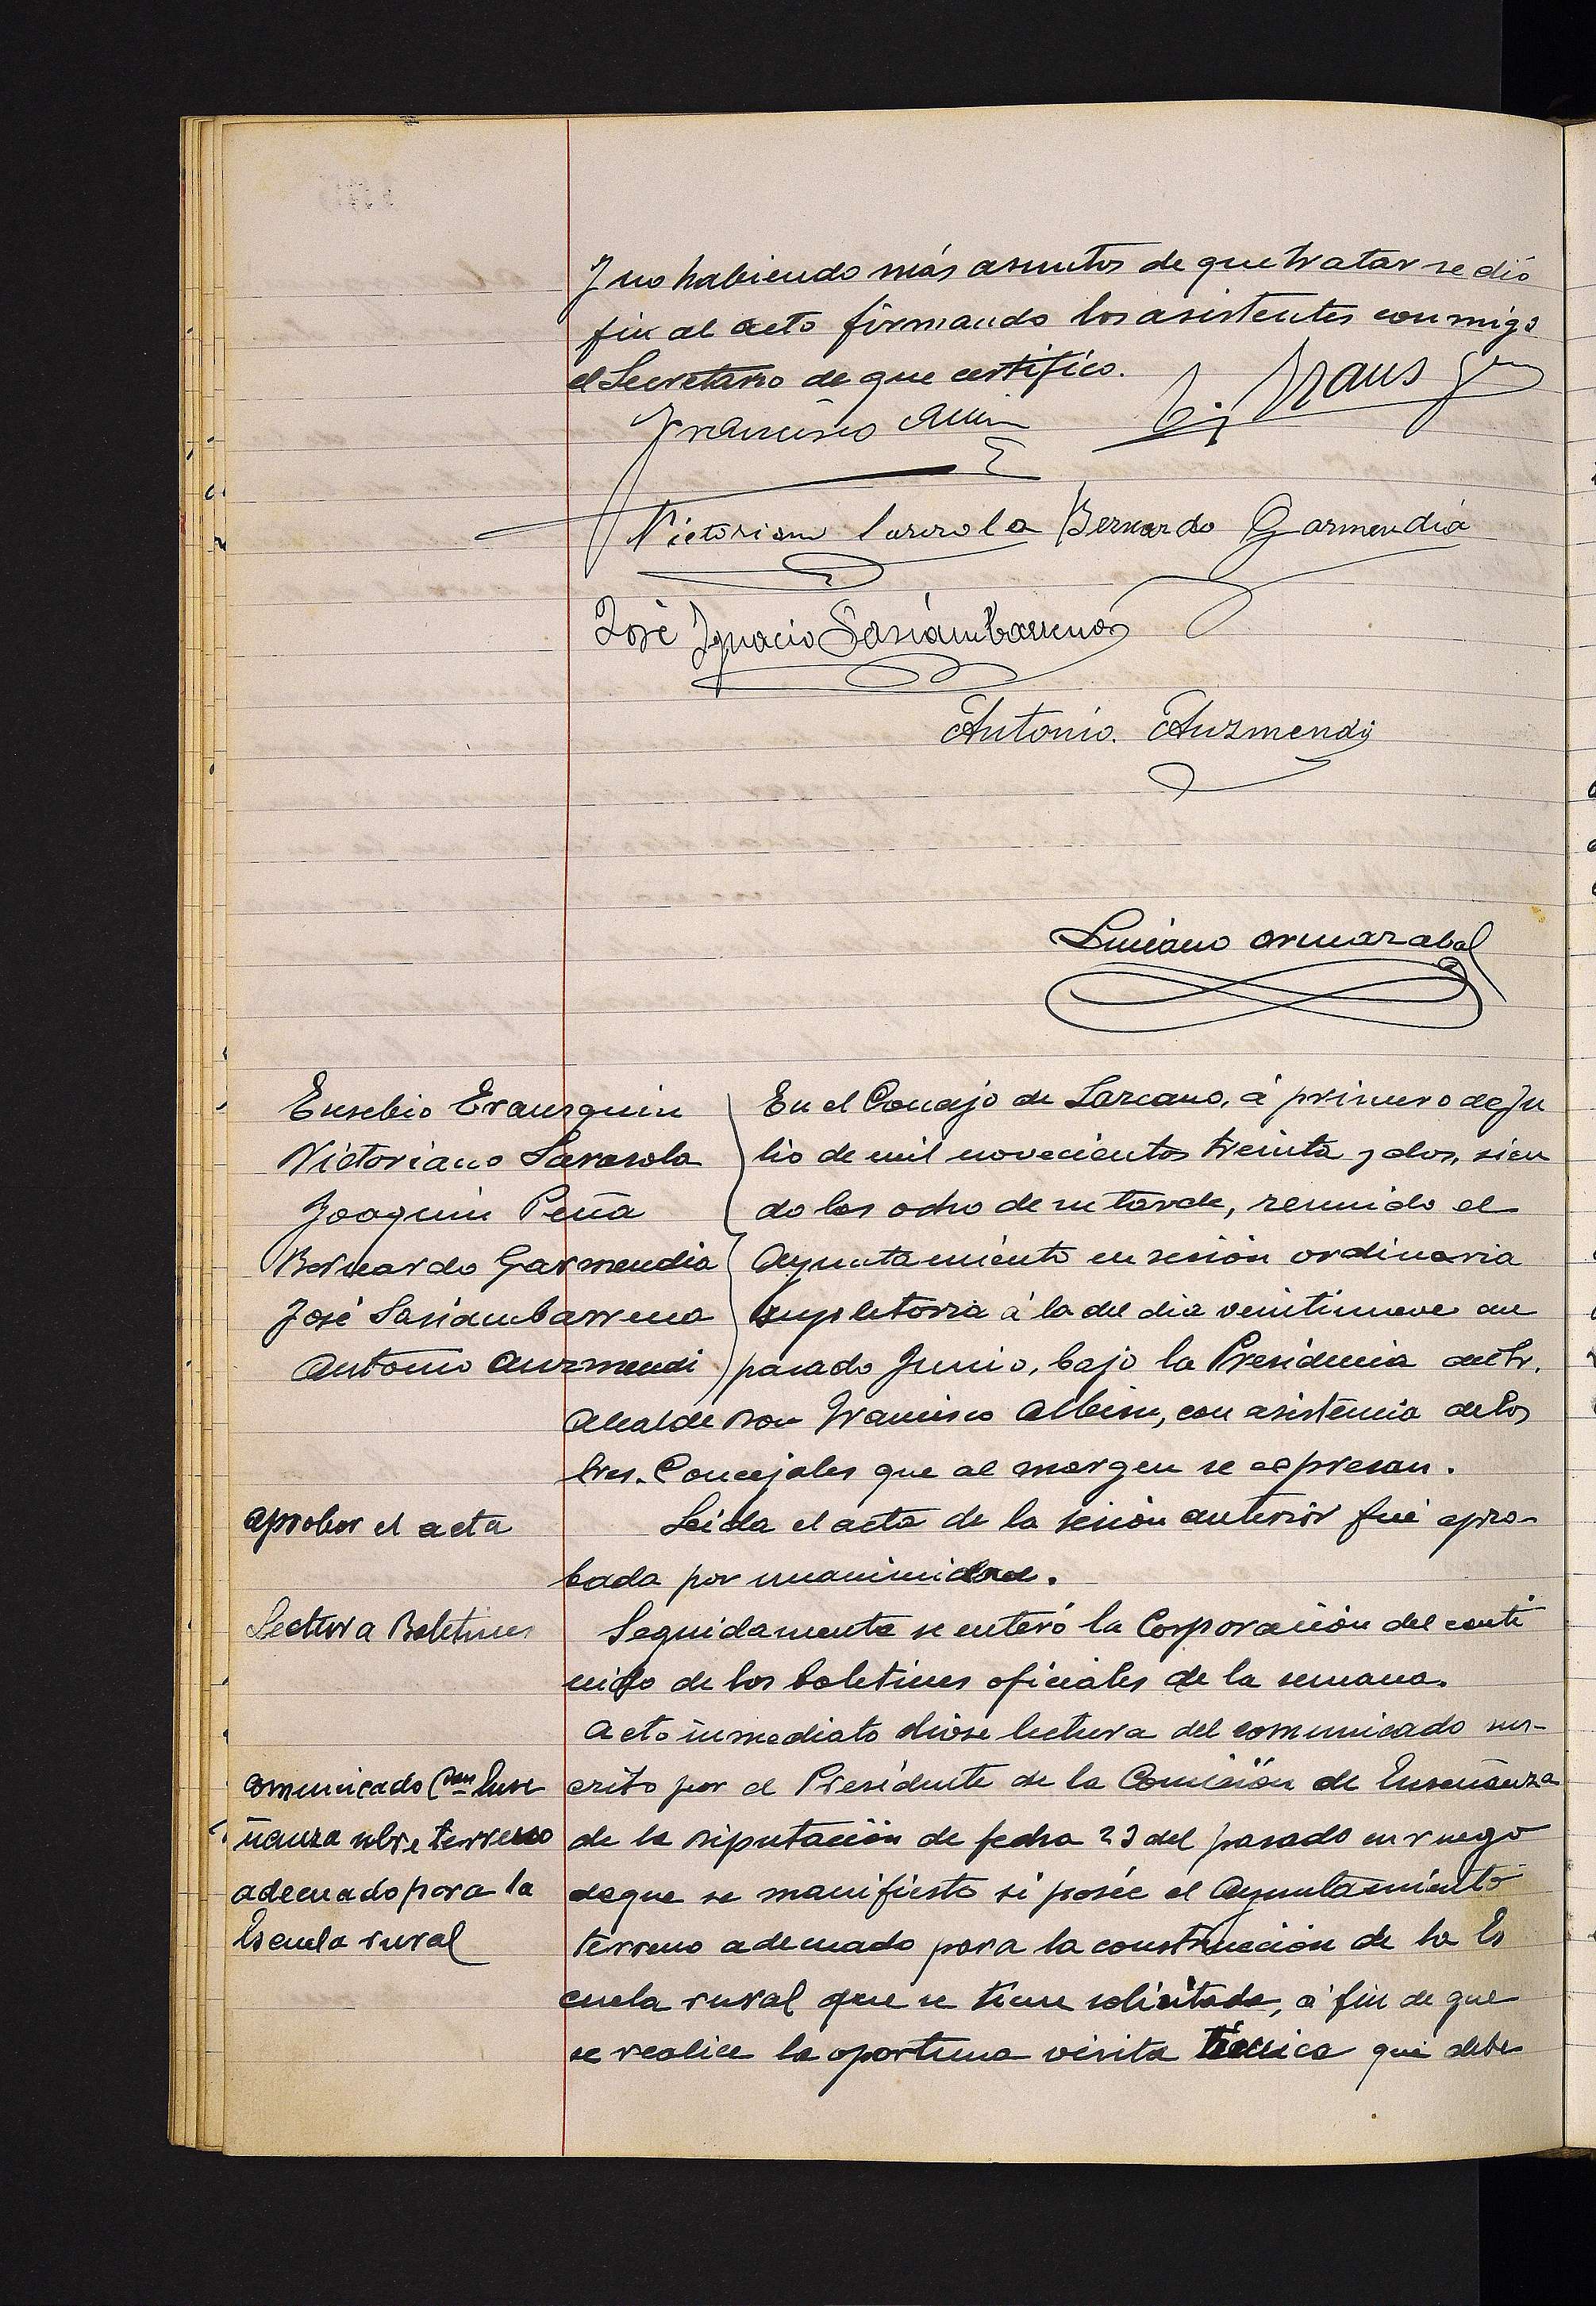 Y no habiendo más asuntos de que tratar se dió
fin al acto firmando los asistentes conmigo
el Secretario de que certifico.
Francisco
Victoriano Sarasola Bernardo Garmendia
José Ignacio Sasiambarrena
Antonio. Auzmendi
Luciano Ormazabal
Eusebio Erausquin
Victoriano Sarasola
Joaquin Peña
Bernardo Garmendia
José Sasiambarrena
Antonio Auzmendi
En el Concejo de Lazcano, á primero de Ju
lio de mil novecientos treinta y dos, sien
do las ocho de su tarde, reunido el
Ayuntamiento en sesión ordinaria
supletoria á la del dia veintinueve del
pasado Junio, bajo la Presidencia del Sr.
Alcalde Don Francisco Albisu, con asistencia de los
Sres. Concejales que al margen se expresan.
aprobar el acta
Leida el acta de la sesión anterior fué apro-
bada por unanimidad.
Lectura Boletines
Seguidamente se enteró la Corporación del conte
nido de los boletines oficiales de la semana.
Acto inmediato dióse lectura del comunicado sus-
crito por el Presidente de la Comisión de Enseñanza
de la Diputación de fecha 23 del pasado en ruego
de que se manifieste si posée el Ayuntamiento
terreno adecuado para la construcción de la Es
cuela rural que se tiene solicitada, á fin de que
se realice la oportuna visita técnica que debe
comunicado Con Ense
ñanza sobre terreno
adecuado para la
Escuela rural